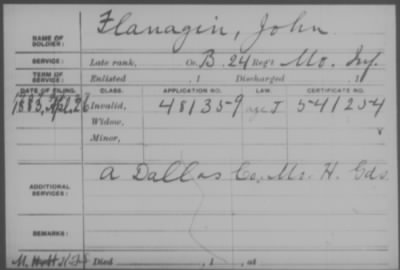 NAME OF SOLDIER: Flanagin, John
SERVICE: Late rank, Co. B. 24 Reg't Mo. Inf.
TERM OF SERVICE: Enlisted , 1 Discharged , 1
DATE OF FILING. CLASS. APPLICATION NO. LAW. CERTIFICATE NO.
1883, Apl. 26 Invalid, 481359 541254
Widow,
Minor,
ADDITIONAL SERVICES: a Dallas Co. Mo. H. Gds.
REMARKS:
Died , 1 , at